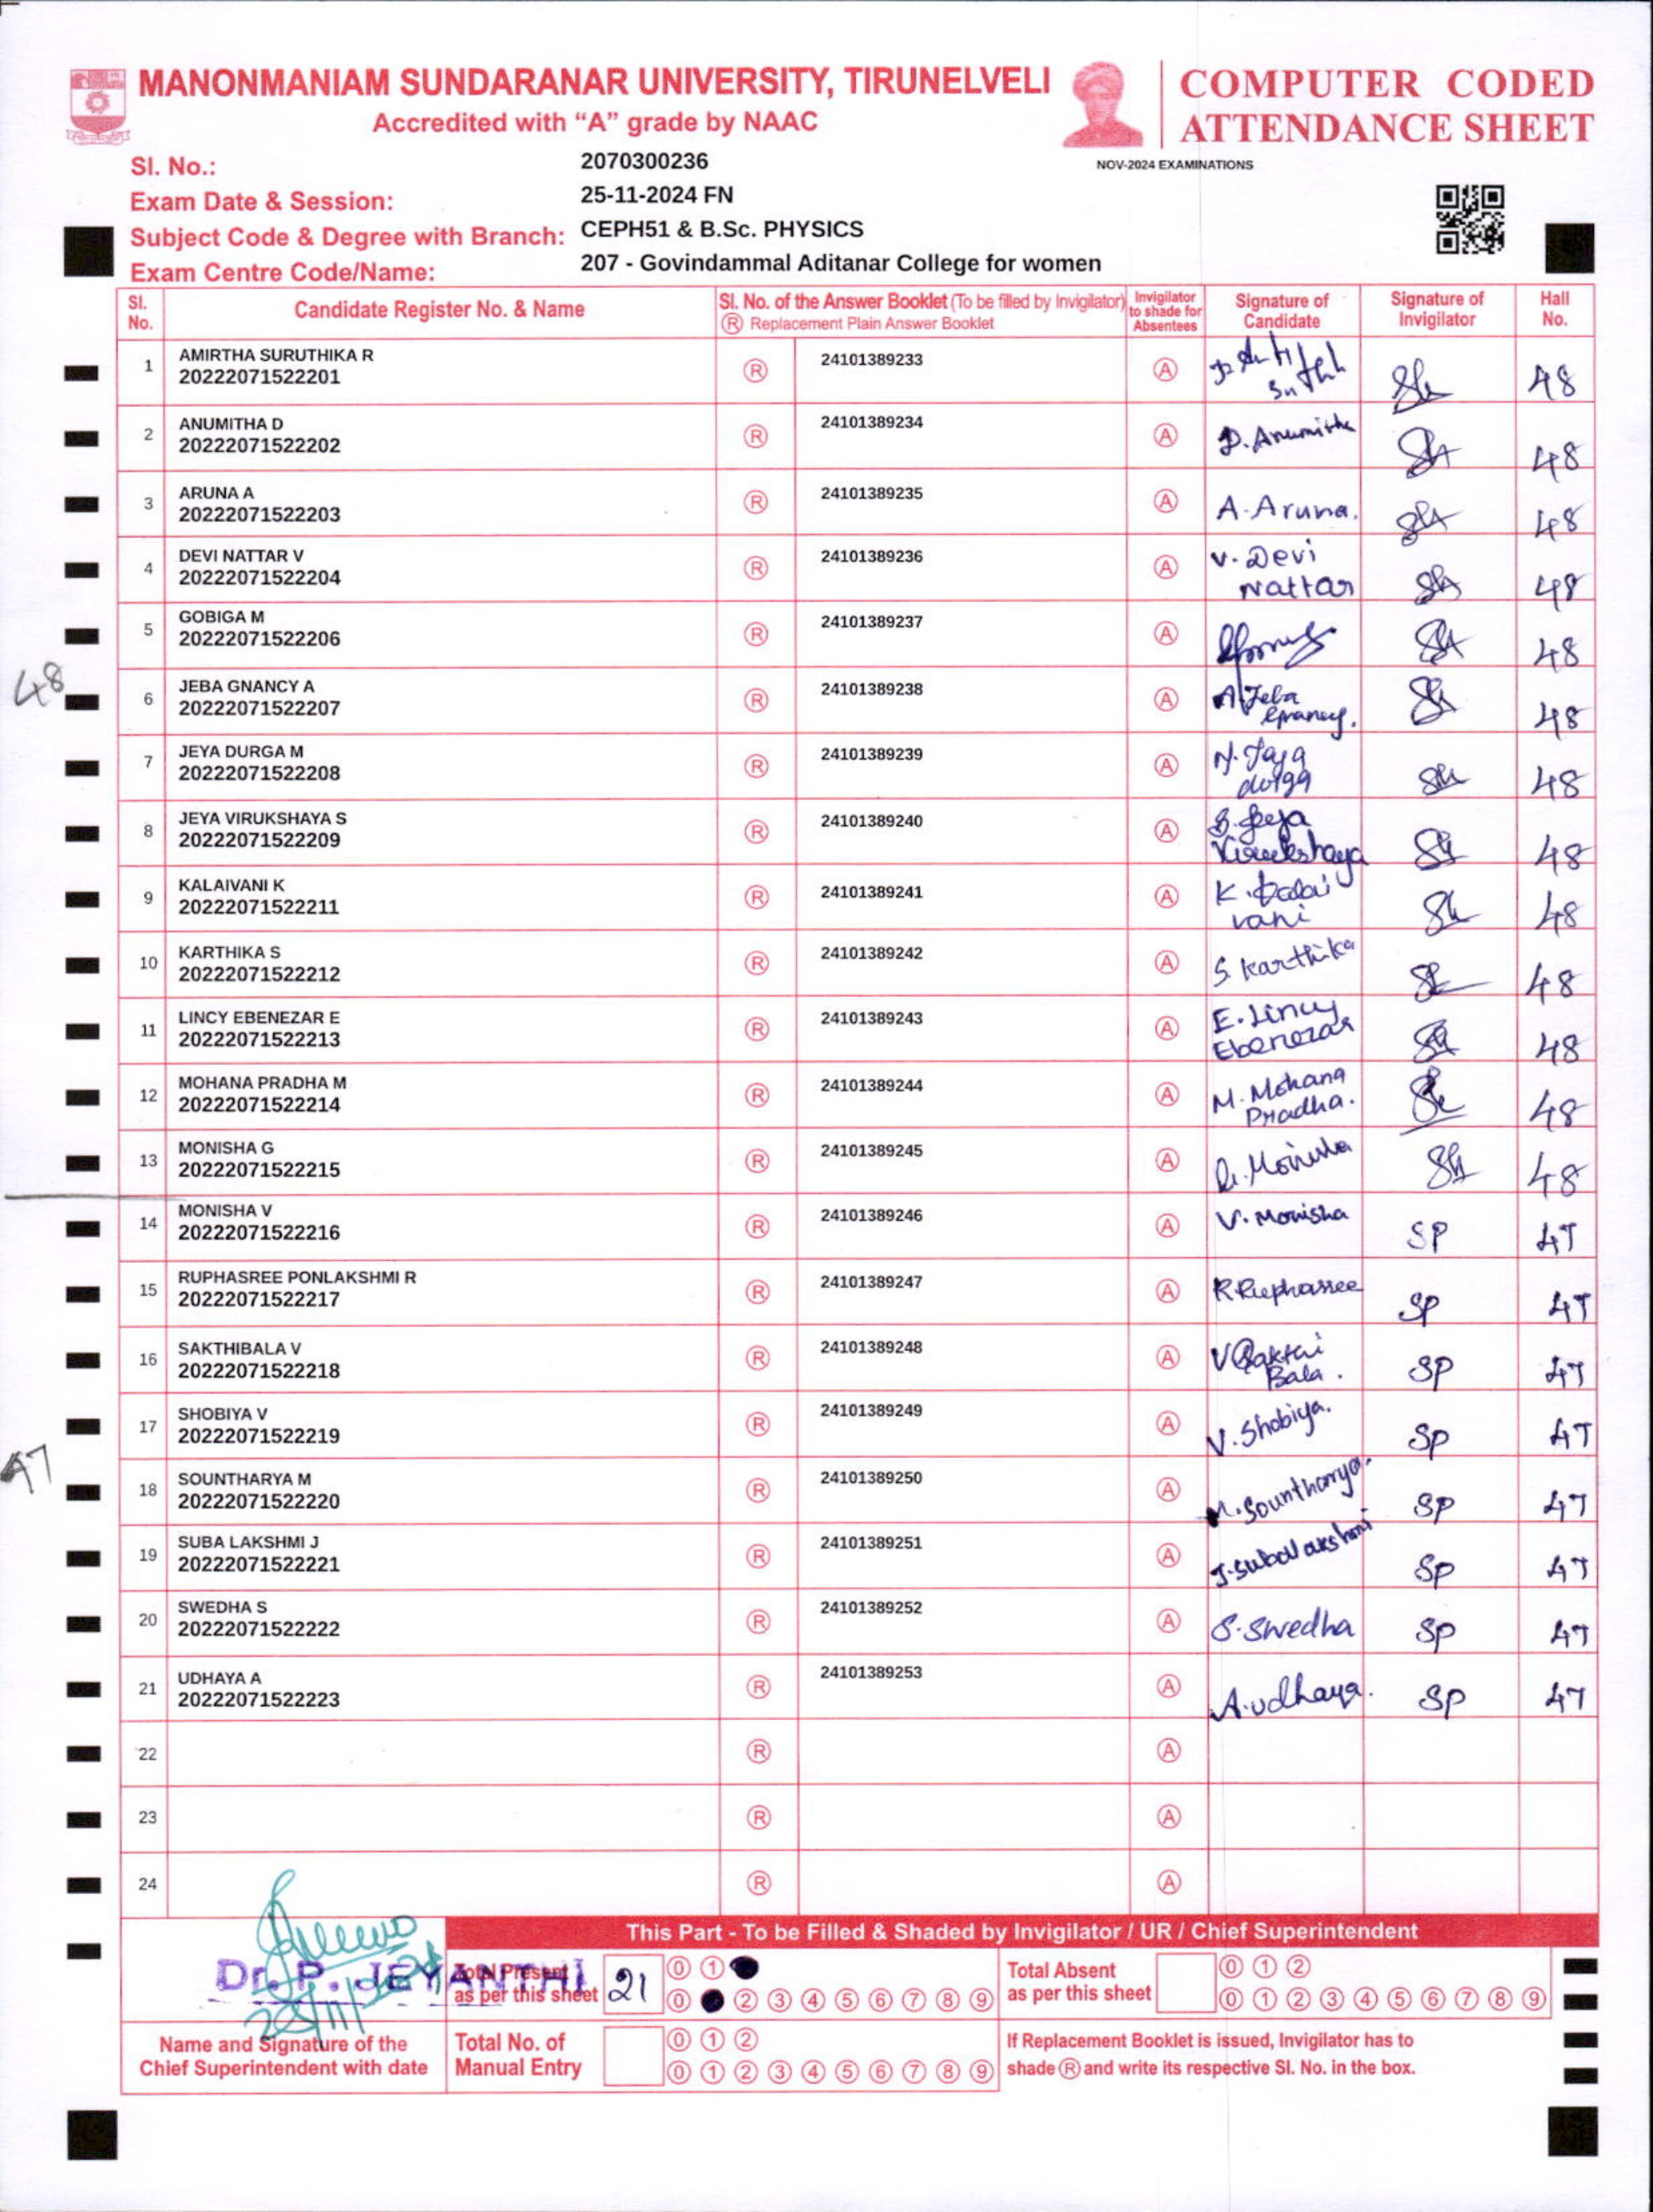 MANONMANIAM SUNDARANAR UNIVERSITY, TIRUNELVELI
Accredited with “A” grade by NAAC
COMPUTER CODED
ATTENDANCE SHEET
NOV-2024 EXAMINATIONS
Sl. No.: 2070300236
Exam Date & Session: 25-11-2024 FN
Subject Code & Degree with Branch: CEPH51 & B.Sc. PHYSICS
Exam Centre Code/Name: 207 - Govindammal Aditanar College for women
Sl. No. Candidate Register No. & Name Sl. No. of the Answer Booklet (To be filled by Invigilator) Ⓡ Replacement Plain Answer Booklet Invigilator to shade for Absentees Signature of Candidate Signature of Invigilator Hall No.
1 AMIRTHA SURUTHIKA R 20222071522201 Ⓡ 24101389233 Ⓐ 48
2 ANUMITHA D 20222071522202 Ⓡ 24101389234 Ⓐ D. Anumitha 48
3 ARUNA A 20222071522203 Ⓡ 24101389235 Ⓐ A. Aruna. 48
4 DEVI NATTAR V 20222071522204 Ⓡ 24101389236 Ⓐ V. Devi Nattar 48
5 GOBIGA M 20222071522206 Ⓡ 24101389237 Ⓐ 48
48
6 JEBA GNANCY A 20222071522207 Ⓡ 24101389238 Ⓐ A. Jeba Gnancy. 48
7 JEYA DURGA M 20222071522208 Ⓡ 24101389239 Ⓐ durga 48
8 JEYA VIRUKSHAYA S 20222071522209 Ⓡ 24101389240 Ⓐ S. Jeya Virukshaya 48
9 KALAIVANI K 20222071522211 Ⓡ 24101389241 Ⓐ K. Kalai vani 48
10 KARTHIKA S 20222071522212 Ⓡ 24101389242 Ⓐ S. Karthika 48
11 LINCY EBENEZAR E 20222071522213 Ⓡ 24101389243 Ⓐ E. Lincy Ebenezar 48
12 MOHANA PRADHA M 20222071522214 Ⓡ 24101389244 Ⓐ M. Mohana Pradha. 48
13 MONISHA G 20222071522215 Ⓡ 24101389245 Ⓐ G. Monisha 48
14 MONISHA V 20222071522216 Ⓡ 24101389246 Ⓐ V. Monisha SP 47
15 RUPHASREE PONLAKSHMI R 20222071522217 Ⓡ 24101389247 Ⓐ R. Ruphasree SP 47
16 SAKTHIBALA V 20222071522218 Ⓡ 24101389248 Ⓐ V Sakthi Bala. SP 47
17 SHOBIYA V 20222071522219 Ⓡ 24101389249 Ⓐ V. Shobiya. SP 47
47
18 SOUNTHARYA M 20222071522220 Ⓡ 24101389250 Ⓐ M. Sountharya. SP 47
19 SUBA LAKSHMI J 20222071522221 Ⓡ 24101389251 Ⓐ J. Suba Lakshmi SP 47
20 SWEDHA S 20222071522222 Ⓡ 24101389252 Ⓐ S. Swedha SP 47
21 UDHAYA A 20222071522223 Ⓡ 24101389253 Ⓐ A. Udhaya. SP 47
22 Ⓡ Ⓐ
23 Ⓡ Ⓐ
24 Ⓡ Ⓐ
This Part - To be Filled & Shaded by Invigilator / UR / Chief Superintendent
Dr. P. JEYANTHI
Total Present as per this sheet 21
0 1
0 2 3 4 5 6 7 8 9
Total Absent as per this sheet
0 1 2
0 1 2 3 4 5 6 7 8 9
Name and Signature of the
Chief Superintendent with date
Total No. of
Manual Entry
0 1 2
0 1 2 3 4 5 6 7 8 9
If Replacement Booklet is issued, Invigilator has to
shade Ⓡ and write its respective Sl. No. in the box.